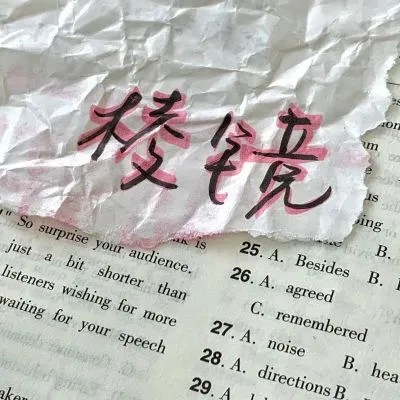 棱镜
" So surprise your audience.
is
just a bit shorter than
listeners wishing for more
waiting for your speech
25. A. Besides B.
26. A. agreed
C. remembered
27. A. noise B. hea
28. A. directions B.
29. A.